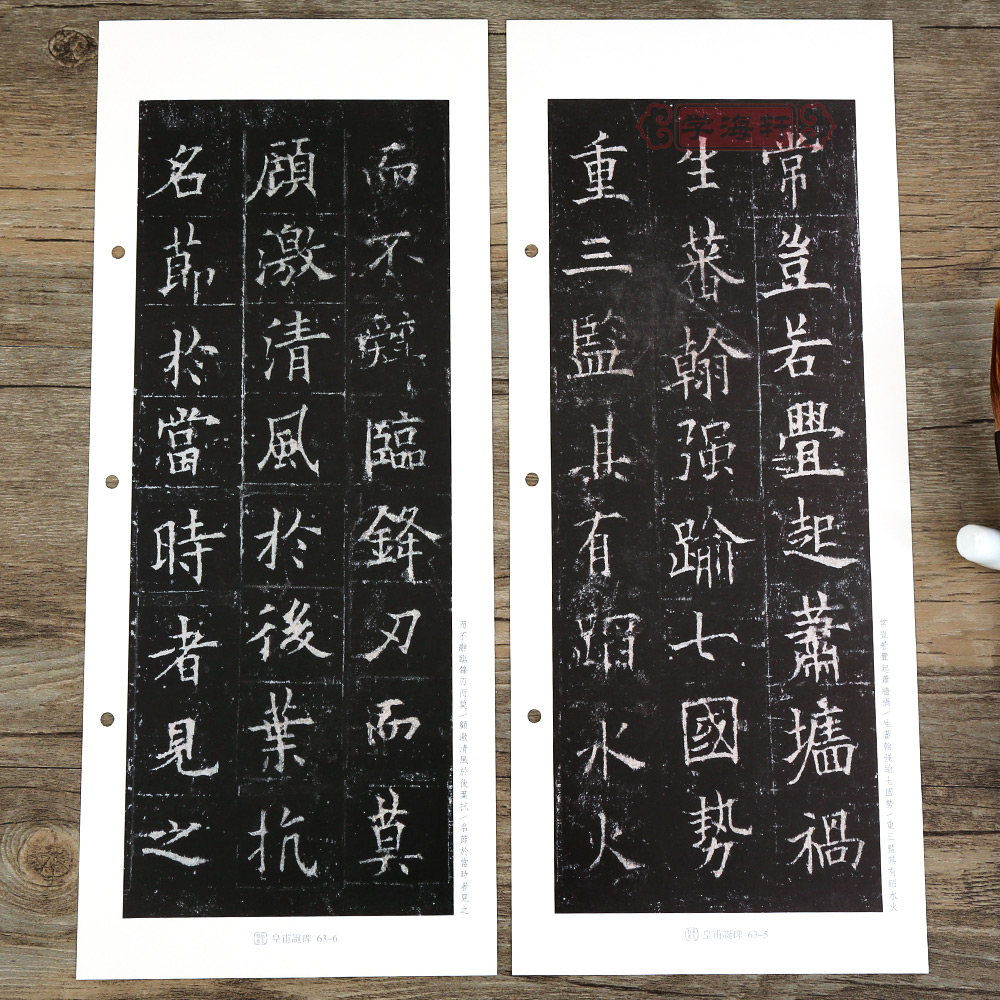 学海轩
常豈若舋起蕭墻禍
生蕃翰强踰七國勢
重三監其有蹈水火
常豈若舋起蕭墻禍/生蕃翰强踰七國勢/重三監其有蹈水火
皇甫誕碑 63-5
而不辭臨鋒刃而莫
顧激清風於後葉抗
名節於當時者見之
而不辭臨鋒刃而莫/顧激清風於後葉抗/名節於當時者見之
皇甫誕碑 63-6